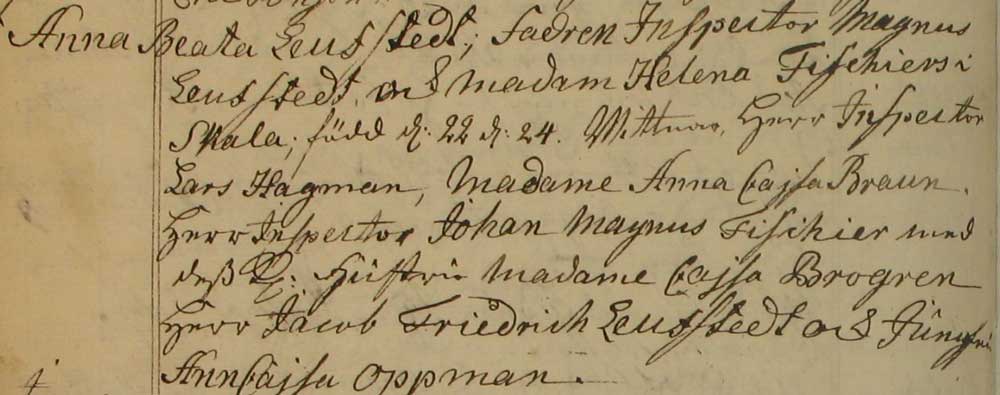 Anna Beata Leufstedt; Fadren Inspector Magnus
Leufstedt och Madam Helena Fischiers i
Skala; född d: 22 d: 24. Wittnar, Herr Inspector
Lars Hagman, Madame Anna Cajsa Braun.
Herr Inspector Johan Magnus Fischier med
deß K: Hustru Madame Cajsa Brogren
Herr Jacob Friedrich Leufstedt och Jungfru
Ann Cajsa Oppman.